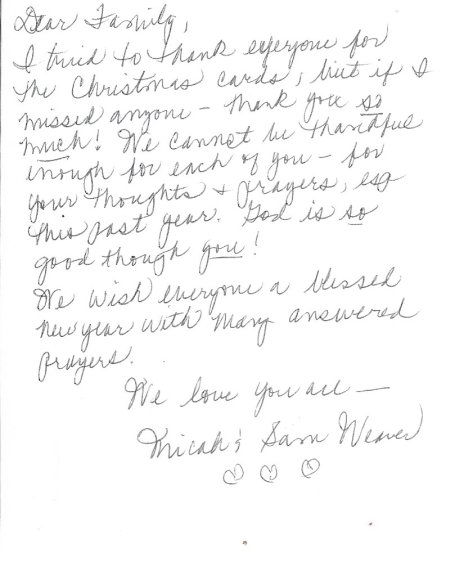 Dear Family,
I tried to thank everyone for
the Christmas cards, but if I
missed anyone – thank you so
much! We cannot be thankful
enough for each of you – for
your thoughts & prayers, esp
this past year. God is so
good though you!
We wish everyone a blessed
new year with many answered
prayers.
We love you all –
Micah & Sam Weaver